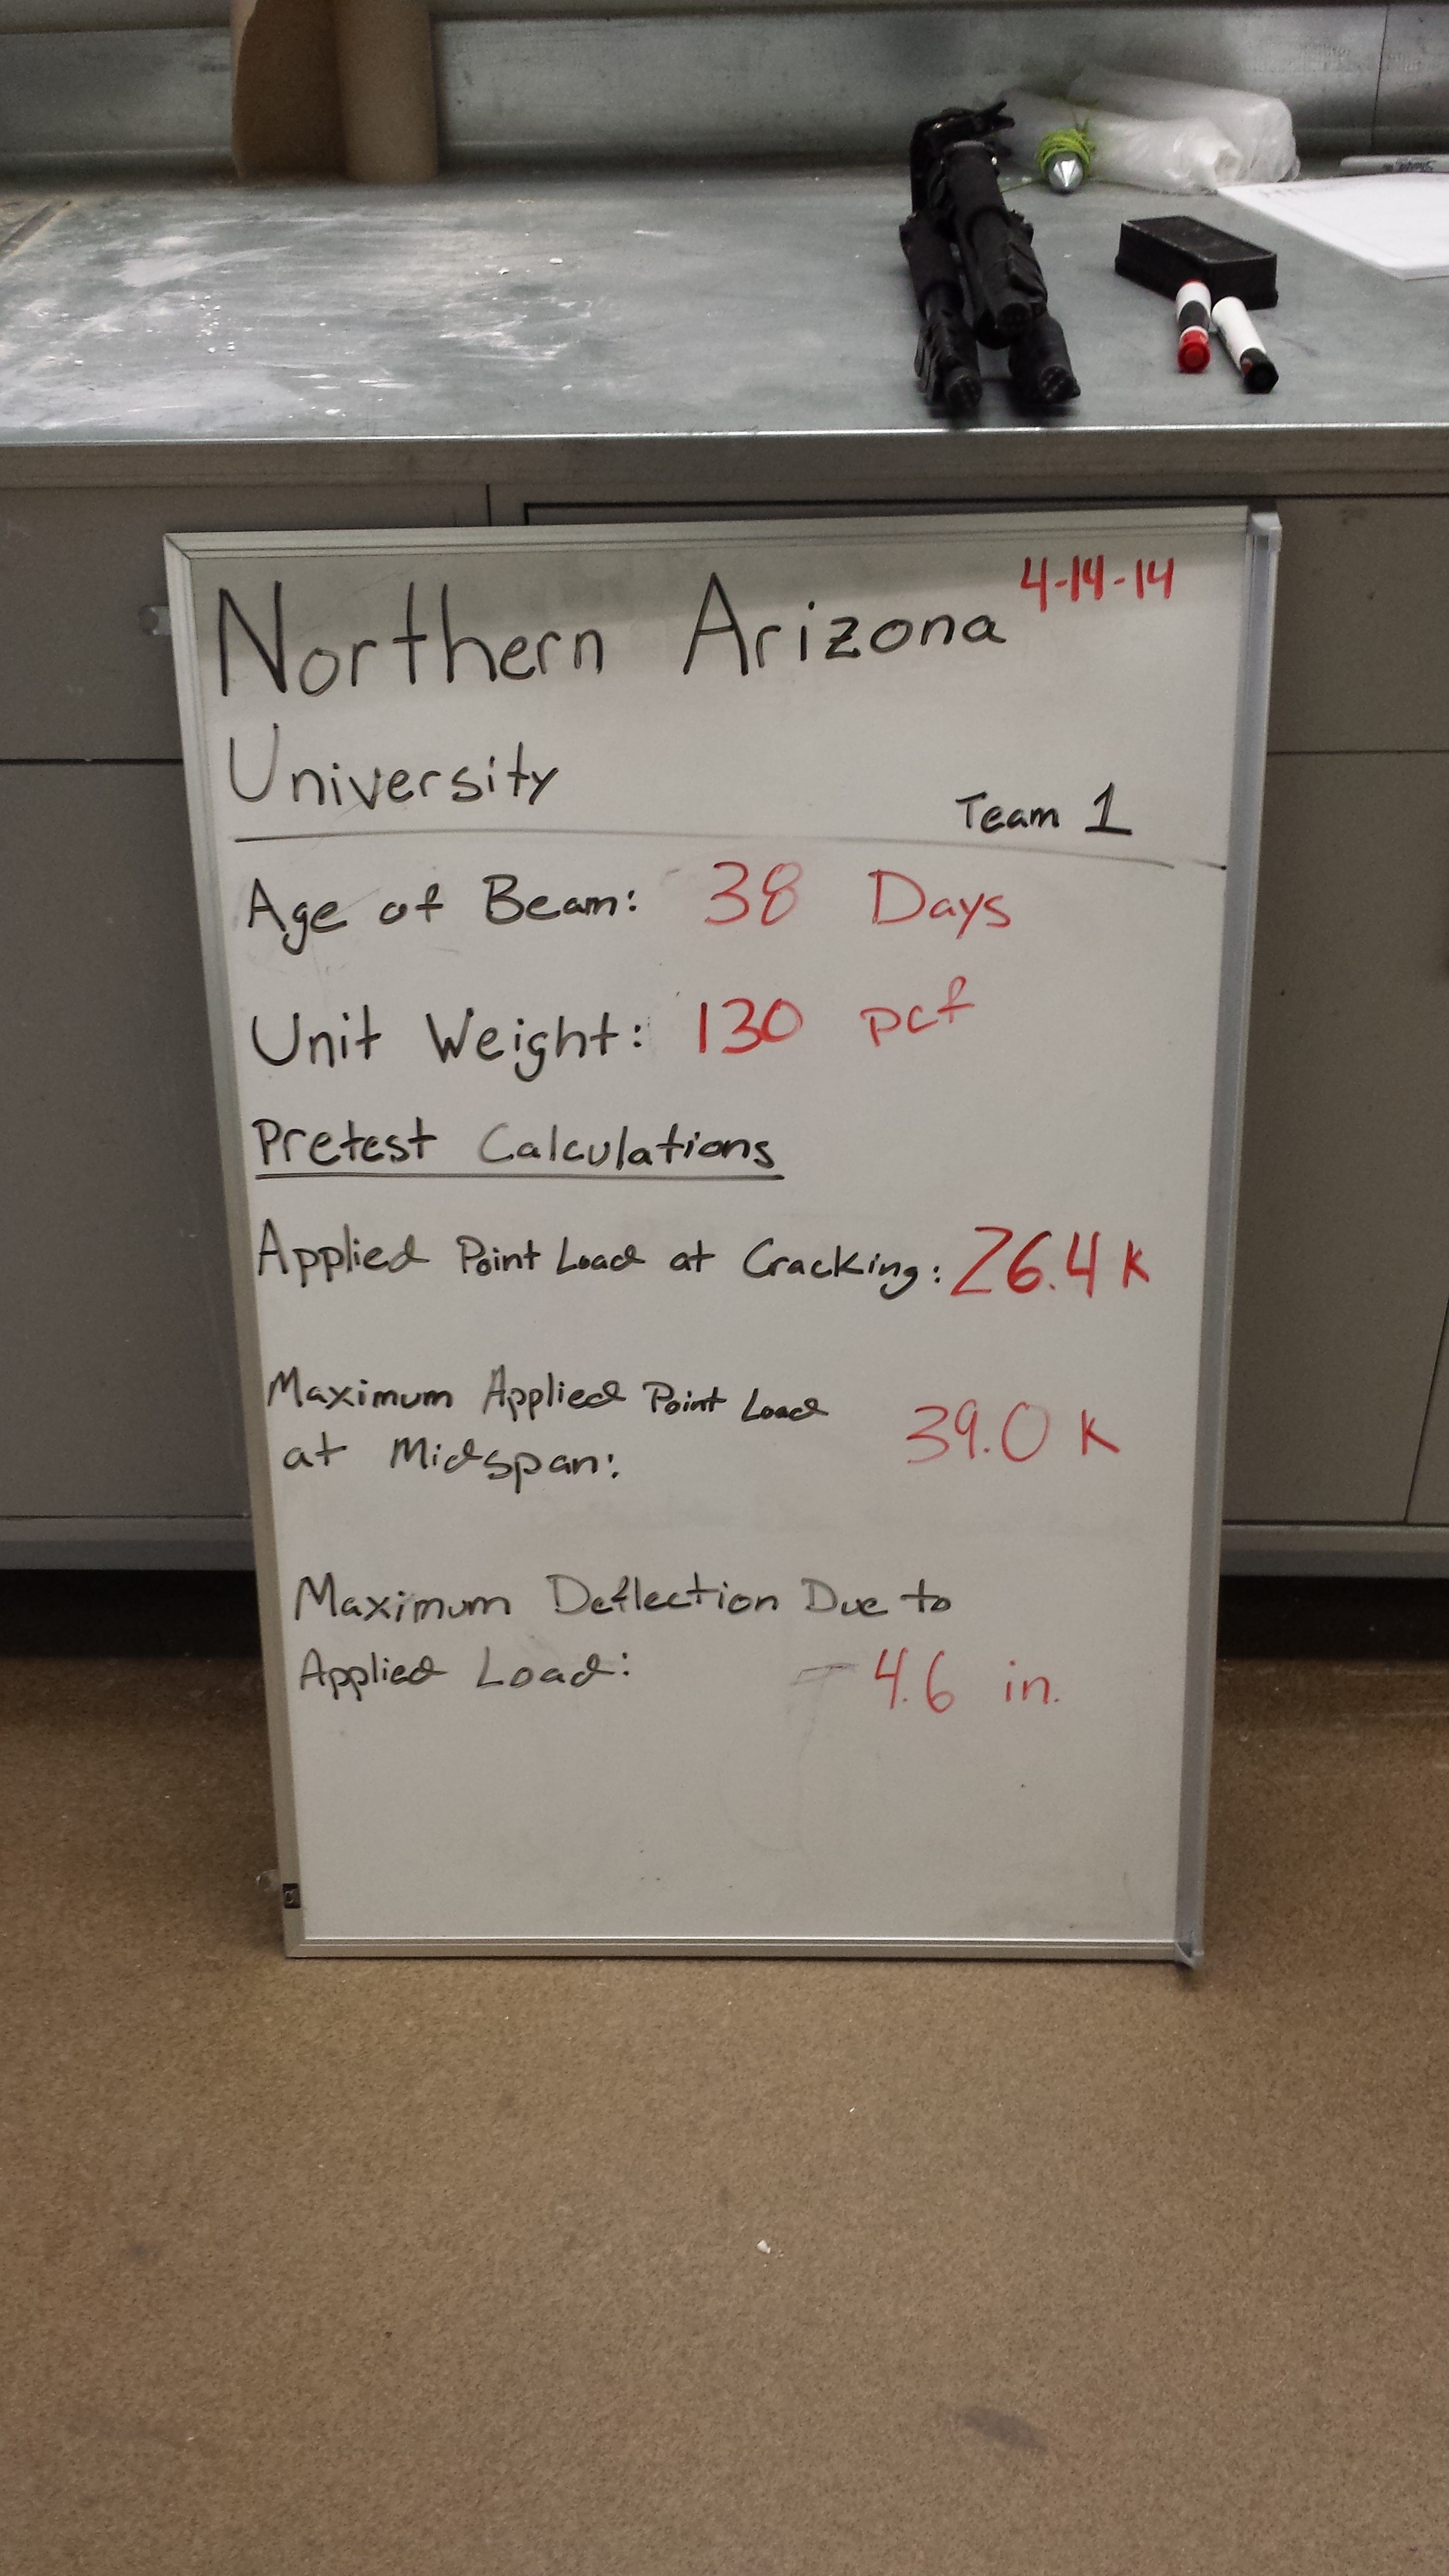 4-14-14
Northern Arizona
University
Team 1
Age of Beam: 38 Days
Unit Weight: 130 pcf
Pretest Calculations
Applied Point Load at Cracking: 26.4 k
Maximum Applied Point Load
at Midspan: 39.0 k
Maximum Deflection Due to
Applied Load: 4.6 in.